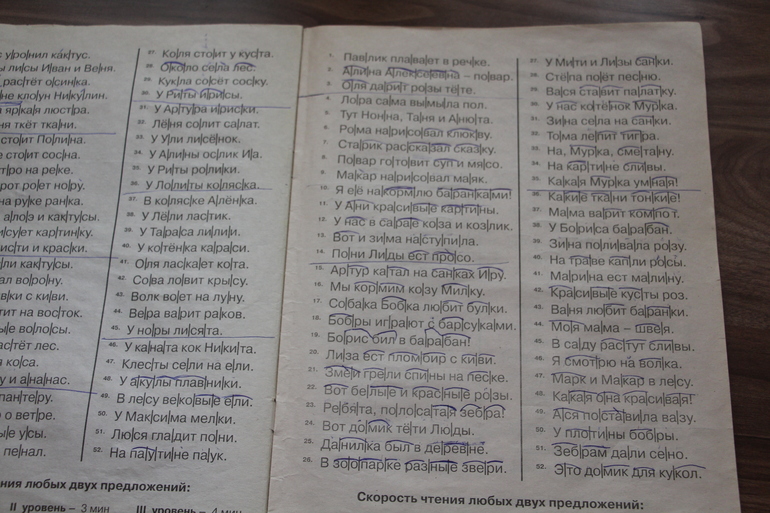 уро|нил как|тус.
лисы И|ван и Ве|ня.
рас|тёт о|син|ка.
не кло|ун Ни|ку|лин.
яр|ка|я люст|ра.
ня ткёт тка|ни.
сто|ит По|ли|на.
е сто|ит сос|на.
ро на ре|ке.
рот ро|ет но|ру.
на ру|ке ран|ка.
а|ло|э и как|ту|сы.
су|ет кар|тин|ку.
ис|ти и крас|ки.
ли как|ту|сы.
ал во|ро|ну.
в|ки с ки|ви.
тит на вос|ток.
ы|е во|ло|сы.
ас|тёт лес.
я ко|са.
у и а|на|нас.
пан|те|ру.
о вет|ре.
ы|е у|сы.
пе|нал.
27. Ко|ля сто|ит у кус|та.
28. О|ко|ло се|ла лес.
29. Кук|ла со|сёт сос|ку.
30. У Ри|ты и|ри|сы.
31. У Ар|ту|ра и|рис|ки.
32. Лё|ня со|лит са|лат.
33. У У|ли ли|сё|нок.
34. У А|ли|ны ос|лик И|а.
35. У Ри|ты ро|ли|ки.
36. У Ло|ли|ты ко|ляс|ка.
37. В ко|ляс|ке А|лён|ка.
38. У Лё|ли лас|тик.
39. У Та|ра|са ли|ли|и.
40. У ко|тён|ка ка|ра|си.
41. О|ля лас|ка|ет ко|та.
42. Со|ва ло|вит кры|су.
43. Волк во|ет на лу|ну.
44. Ве|ра ва|рит ра|ков.
45. У но|ры ли|ся|та.
46. У ка|на|та кок Ни|ки|та.
47. Клес|ты се|ли на е|ли.
48. У а|ку|лы плав|ни|ки.
49. В ле|су ве|ко|вы|е е|ли.
50. У Мак|си|ма мел|ки.
51. Лю|ся гла|дит по|ни.
52. На па|у|ти|не па|ук.
ния любых двух предложений:
II уровень – 3 мин III уровень – 4 мин
1. Пав|лик пла|ва|ет в реч|ке.
2. А|ли|на А|лек|се|ев|на – по|вар.
3. О|ля да|рит ро|зы тё|те.
4. Ло|ра са|ма вы|мы|ла пол.
5. Тут Нон|на, Та|ня и А|ню|та.
6. Ро|ма на|ри|со|вал клюк|ву.
7. Ста|рик рас|ска|зал сказ|ку.
8. По|вар го|то|вит суп и мя|со.
9. Ма|кар на|ри|со|вал ма|як.
10. Я е|ё на|корм|лю ба|ран|ка|ми!
11. У А|ни кра|си|вы|е кар|ти|ны.
12. У нас в са|ра|е ко|за и коз|лик.
13. Вот и зи|ма на|сту|пи|ла.
14. По|ни Ли|ды ест про|со.
15. Ар|тур ка|тал на сан|ках И|ру.
16. Мы кор|мим ко|зу Мил|ку.
17. Со|ба|ка Боб|ка лю|бит бул|ки.
18. Боб|ры иг|ра|ют с бар|су|ка|ми.
19. Бо|рис бил в ба|ра|бан!
20. Ли|за ест плом|бир с ки|ви.
21. Зме|и гре|ли спи|ны на пес|ке.
22. Вот бе|лы|е и крас|ны|е ро|зы.
23. Ре|бя|та, по|ло|са|та|я зеб|ра!
24. Вот до|мик тё|ти Лю|ды.
25. Да|нил|ка был в де|рев|не.
26. В зо|о|пар|ке раз|ны|е зве|ри.
27. У Ми|ти и Ли|зы сан|ки.
28. Стё|па по|ёт пес|ню.
29. Ва|ся ста|вит па|лат|ку.
30. У нас ко|тё|нок Мур|ка.
31. Зи|на се|ла на сан|ки.
32. То|ма ле|пит тиг|ра.
33. На, Мур|ка, сме|та|ну.
34. На кар|ти|не сли|вы.
35. Ка|ка|я Мур|ка ум|на|я!
36. Ка|ки|е тка|ни тон|ки|е!
37. Ма|ма ва|рит ком|по|т.
38. У Бо|ри|са ба|ра|бан.
39. Зи|на по|ли|ва|ла ро|зу.
40. На тра|ве кап|ли ро|сы.
41. Ма|ри|на ест ма|ли|ну.
42. Кра|си|вы|е кус|ты роз.
43. Ва|ня лю|бит ба|ран|ки.
44. Мо|я ма|ма – шве|я.
45. В са|ду рас|тут сли|вы.
46. Я смот|рю на вол|ка.
47. Марк и Ма|кар в ле|су.
48. Ка|ка|я о|на кра|си|ва|я!
49. А|ся по|ста|ви|ла ва|зу.
50. У пло|ти|ны боб|ры.
51. Зеб|рам да|ли се|но.
52. Э|то до|мик для ку|кол.
Скорость чтения любых двух предложений: